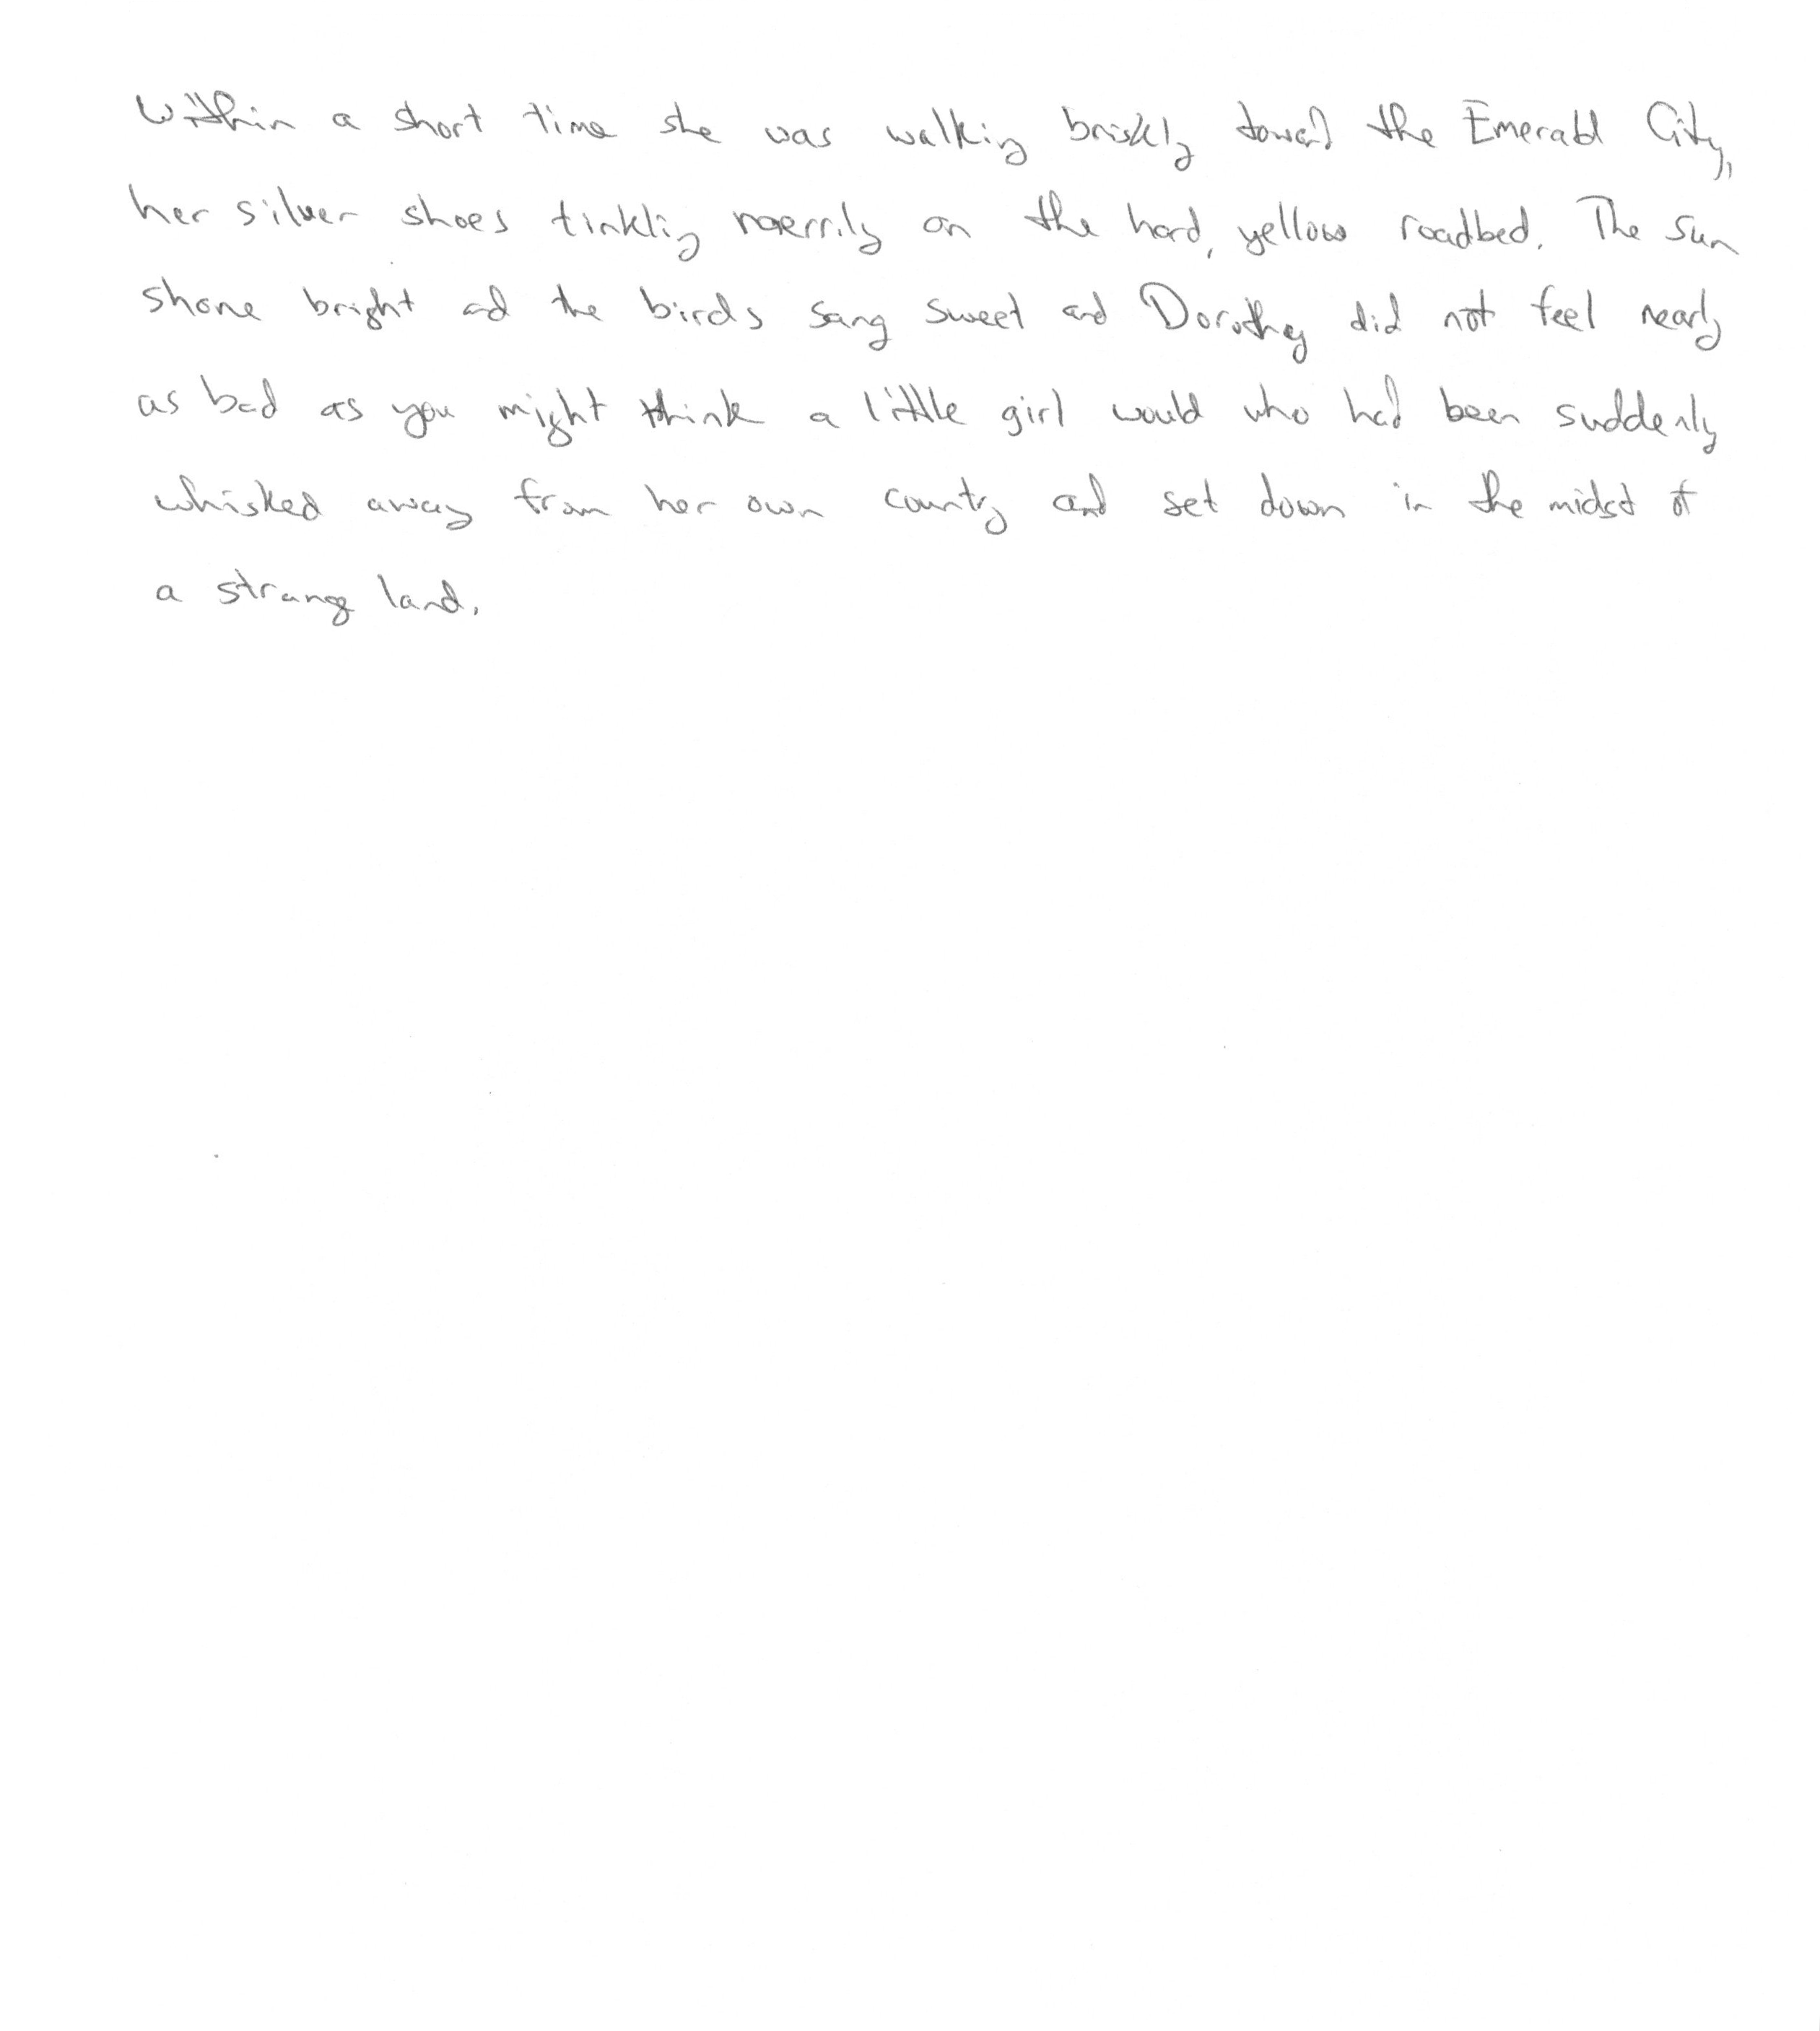 Within a short time she was walking briskly toward the Emerald City,
her silver shoes tinkling merrily on the hard, yellow roadbed. The sun
shone bright and the birds sang sweet and Dorothy did not feel nearly
as bad as you might think a little girl would who had been suddenly
whisked away from her own country and set down in the midst of
a strange land.